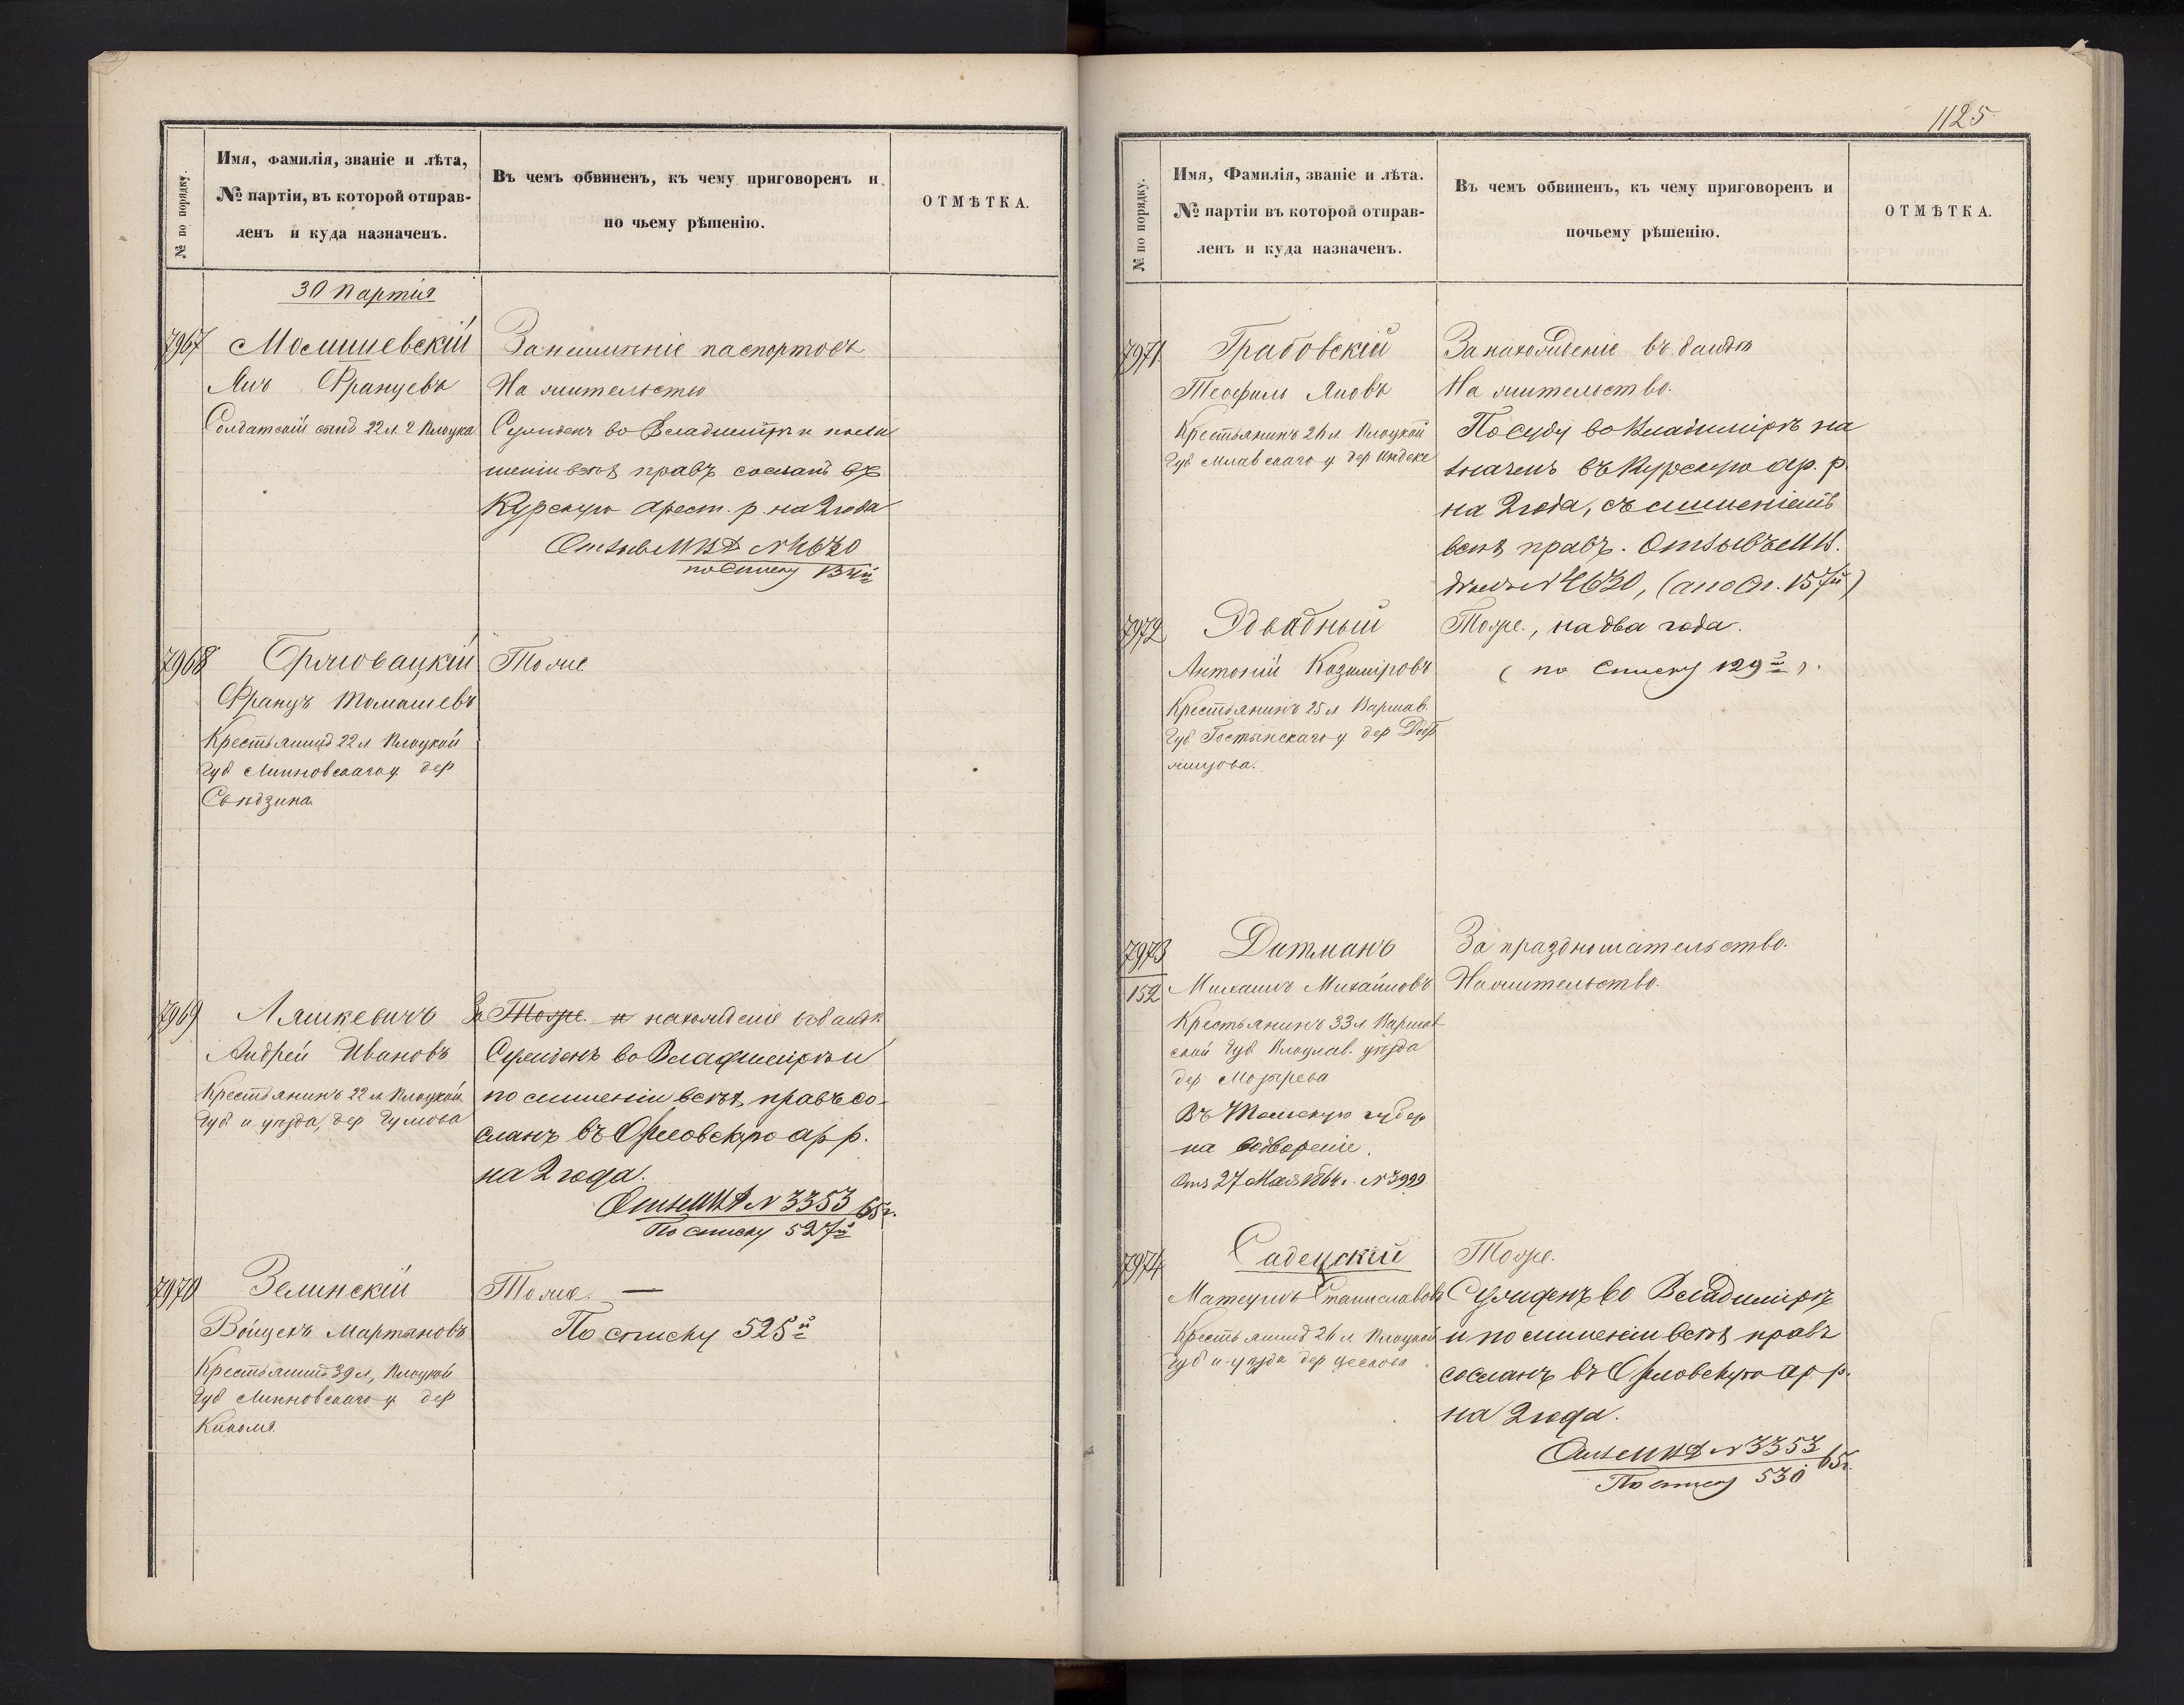 № по порядку.
Имя, Фамилія, званіе и лѣта,
№ партіи, въ которой отправ-
ленъ и куда назначенъ.
Въ чемъ обвиненъ, къ чему приговоренъ и
по чьему рѣшенію.
ОТМѢТКА.
30 партія
7967
Янъ Францевъ
Солдатскій сынъ 22 л. г Плоцка
За неимѣніе паспортовъ
На жительство
Сужденъ во Владимірѣ и по ли
шеніи всѣхъ правъ сосланъ въ
Курскую Арест. р. на 2 года
Отзывъ МВД № 4630
по списку 134й
7968
Францъ Томашевъ
Крестьянинъ 22 л Плоцкой
Губ Липновскаго у. дер
Тоже
7969
Ляшкевичъ
Андрей Ивановъ
Крестьянинъ 22 л Плоцкой
Губ и уѣзда, дер Гумова
За Тоже и нахожденіе въ бандѣ
Сужденъ во Владимірѣ и
по лишеніи всѣхъ правъ со-
сланъ въ Орловскую ар р.
на 2 года.
Отз МВД № 3353 65 г.
По списку 527й
7970
Зелинскій
Войцехъ Мартяновъ
Крестьянинъ 39 л, Плоцкой
Губ Липновскаго у дер
Тоже. —
По списку 525й
1125
№ по порядку.
Имя, Фамилія, званіе и лѣта.
№ партіи въ которой отправ-
ленъ и куда назначенъ.
Въ чемъ обвиненъ, къ чему приговоренъ и
почьему рѣшенію.
ОТМѢТКА.
7971
Грабовскій
Теофиль Яновъ
Крестьянинъ 26 л Плоцкой
Губ Млавскаго у дер
За нахожденіе въ бандѣ
На жительство.
По суду во Владимірѣ на
значенъ въ Курскую ар. р.
на 2 года, съ лишеніемъ
всѣхъ правъ. Отзывъ М. В.
Дѣлъ № 4630, (а по сп. 157й)
7972
Антоній Казиміровъ
Крестьянинъ 25 л Варшав.
Губ Гостынскаго у дер
Тоже, на два года.
(по списку 129й).
7973
152
Дитманъ
Михаилъ Михайловъ
Крестьянинъ 33 л Варшав
ской Губ Влоцлав. уѣзда
дер
Въ Томскую губер
на водвореніе.
Отз 27 Мая 1864 г. № 3999
За праздношательство.
На жительство.
7974
Матеушъ Станиславовъ
Крестьянинъ 26 л Плоцкой
Губ и уѣзда дер
Тоже.
Сужденъ во Владимірѣ
и по лишеніи всѣхъ правъ
сосланъ въ Орловскую ар р.
на 2 года.
Отз МВД № 3353 65 г.
По списку 530